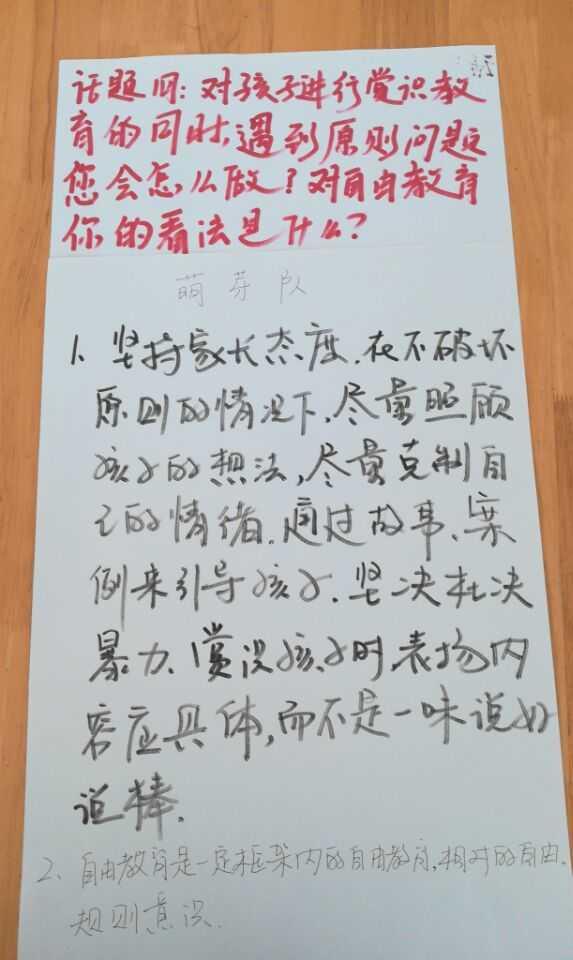 话题四：对孩子进行赏识教
育的同时，遇到原则问题
您会怎么做？对自由教育
你的看法是什么？
萌芽队
1、坚持家长态度，在不破坏
原则的情况下，尽量照顾
孩子的想法，尽量克制自
己的情绪，通过故事、案
例来引导孩子，坚决杜决
暴力、赏识孩子时，表扬内
容应具体，而不是一味说好
说棒。
2、自由教育是一定框架内的自由教育，相对的自由，
规则意识。